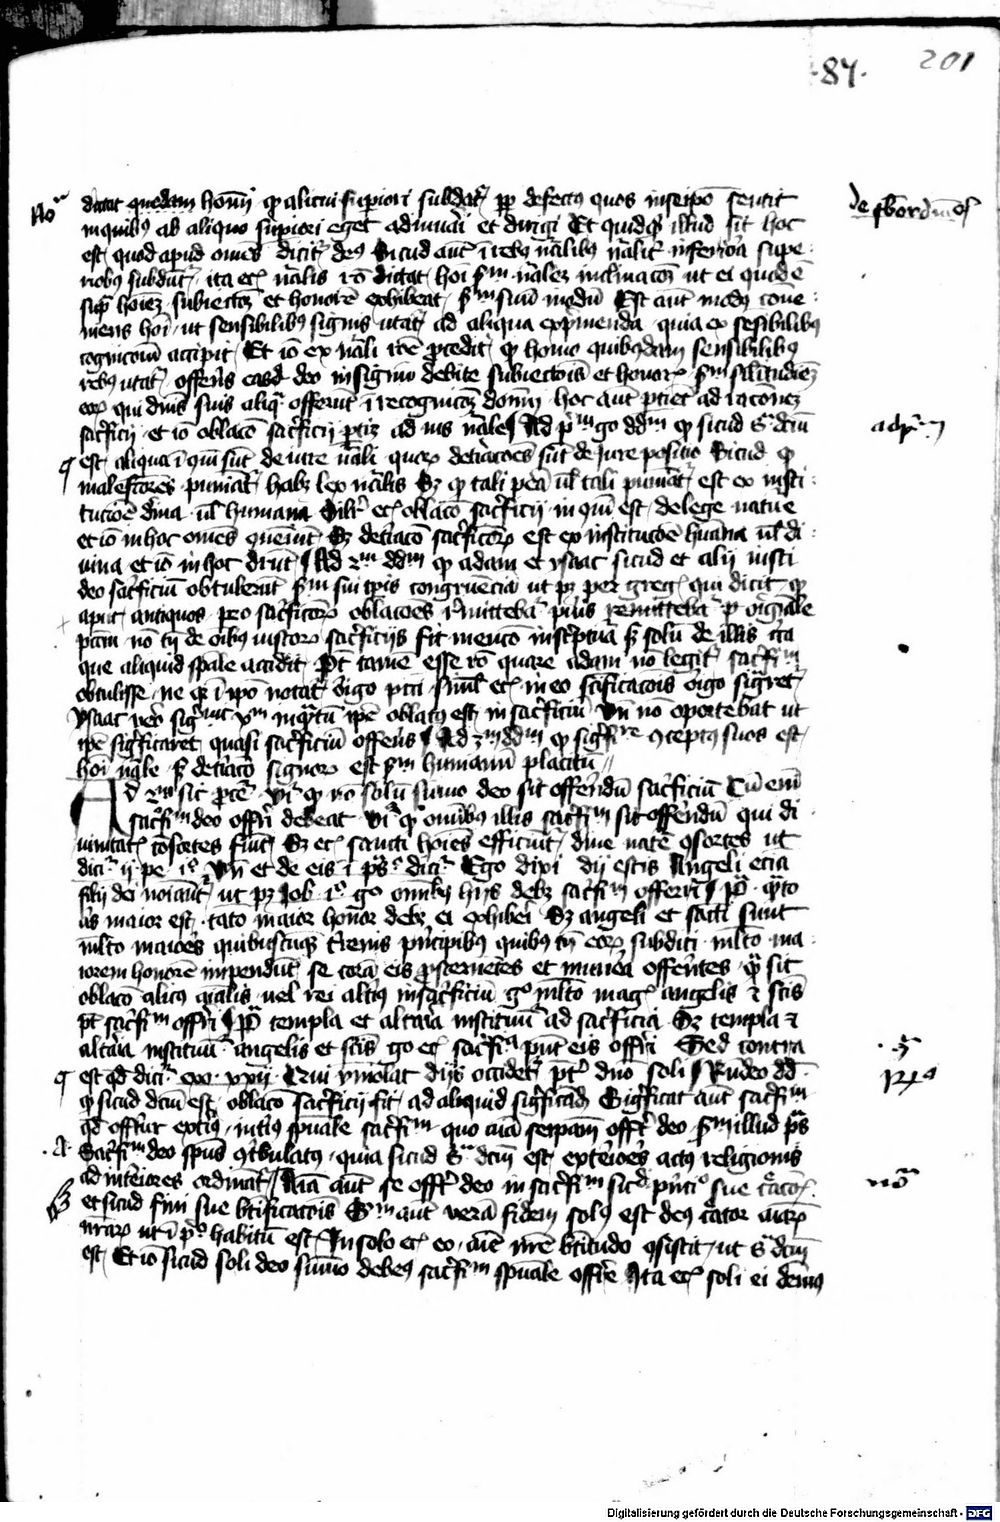 .84. 201
No
dictat quedam homini quod alicui superiori subdatur propter defectus quos in seipso sentit
de subordinacione
in quibus ab aliquo superiori eget adiuvari et dirigi Et quidquid illud sit hoc
est quod apud omnes dicitur deus Sicud autem in rebus naturalibus naturaliter inferiora supe
rioribus subduntur ita eciam naturalis racio dictat homini secundum naturalem inclinacionem ut ei quod est
supra hominem subiectionem et honorem exhibeat secundum suum modum Est autem modus conve
niens homini ut sensibilibus signis utatur ad aliqua exprimenda quia ex sensibilibus
cognicionem accipit Et ideo ex naturali racione procedit quod homo quibusdam sensibilibus
rebus utatur offerens eas deo in signum debite subiectionis et honoris secundum similitudinem
eorum qui dominis suis aliqua offerunt in recognicionem dominii hoc autem pertinet ad racionem
sacrificii et ideo oblacio sacrificii pertinet ad ius naturale Ad primum ergo dicendum quod sicud supra dictum
ad primum
est aliqua in communi sunt de iure naturali quorum determinaciones sunt de iure positivo Sicud quod
malefactores puniantur habet lex naturalis Sed quod tali pena vel tali puniantur est ex insti
tucione divina vel humana Similiter eciam oblacio sacrificii in communi est de lege nature
et ideo in hoc omnes conveniunt Sed determinacio sacrificiorum est ex institucione humana vel di
vina et ideo in hoc differunt Ad 2m dicendum quod adam et ysaac sicud et alii iusti
deo sacrificium obtulerunt secundum sui temporis congruenciam ut patet per gregorium qui dicit quod
aput antiquos per sacrificiorum oblaciones remittebatur pueris originale
peccatum non tamen de omnibus iustorum sacrificiis fit mencio in scriptura sed solum de illis circa
que aliquid speciale accidit Potest tamen esse racio quare adam non legitur sacrificium
obtulisse ne quia in ipso notatur origo peccati simul eciam in eo sanctificacionis origo significaretur
ysaac vero significavit christum in quantum ipse oblatus est in sacrificium Unde non oportebat ut
ipse significaret quasi sacrificium offerens Ad 3m dicendum quod significare conceptus suos est
homini naturale sed determinacio signorum est secundum humanum placitum
Ad 2m sic proceditur Videtur quod non solum summo deo sit offerendum sacrificium Cum enim
sacrificium deo offerri debeat videtur quod omnibus illis sacrificium sit offerendum qui di
vinitatis consortes fiunt Sed eciam sancti homines efficiuntur divine nature consortes ut
dicitur ii pe i Unde et de eis in psalmo dicitur Ego dixi dii estis Angeli eciam
filii dei nominantur ut patet Job i ergo omnibus hiis debet sacrificium offerri Preterea quanto
aliquis maior est tanto maior honor debet ei exhiberi Sed angeli et sancti sunt
multo maiores quibuscumque terrenis principibus quibus tamen eorum subditi multo ma
iorem honorem impendunt se coram eis prosternentes et munera offerentes quam sit
oblacio alicuius animalis vel rei alterius in sacrificium ergo multo magis angelis et sanctis
potest sacrificium offerri Preterea templa et altaria instituuntur ad sacrificia Sed templa et
altaria instituuntur angelis et sanctis ergo eciam sacrificia possunt eis offerri Sed contra
est quod dicitur exo xxii Qui ymolat diis occidetur preter domino soli Respondeo dicendum
quod sicud dictum est oblacio sacrificii fit ad aliquid significandum Significat autem sacrificium
quod offertur exterius interius spirituale sacrificium quo anima seipsam offert deo secundum illud psalmi
Sacrificium deo spiritus contribulatus quia sicud supra dictum est exteriores actus religionis
ad interiores ordinantur Anima autem se offert deo in sacrificium sicud principio sue creacionis
et sicud fini sue beatificacionis Secundum autem veram fidem solus est deus creator animarum
nostrarum ut in primo habitum est In solo eciam eo anime nostre beatitudo consistit ut supra dictum
est Et ideo sicud soli deo summo debemus sacrificium spirituale offerre Ita eciam soli ei debemus
Digitalisierung gefördert durch die Deutsche Forschungsgemeinschaft - DFG